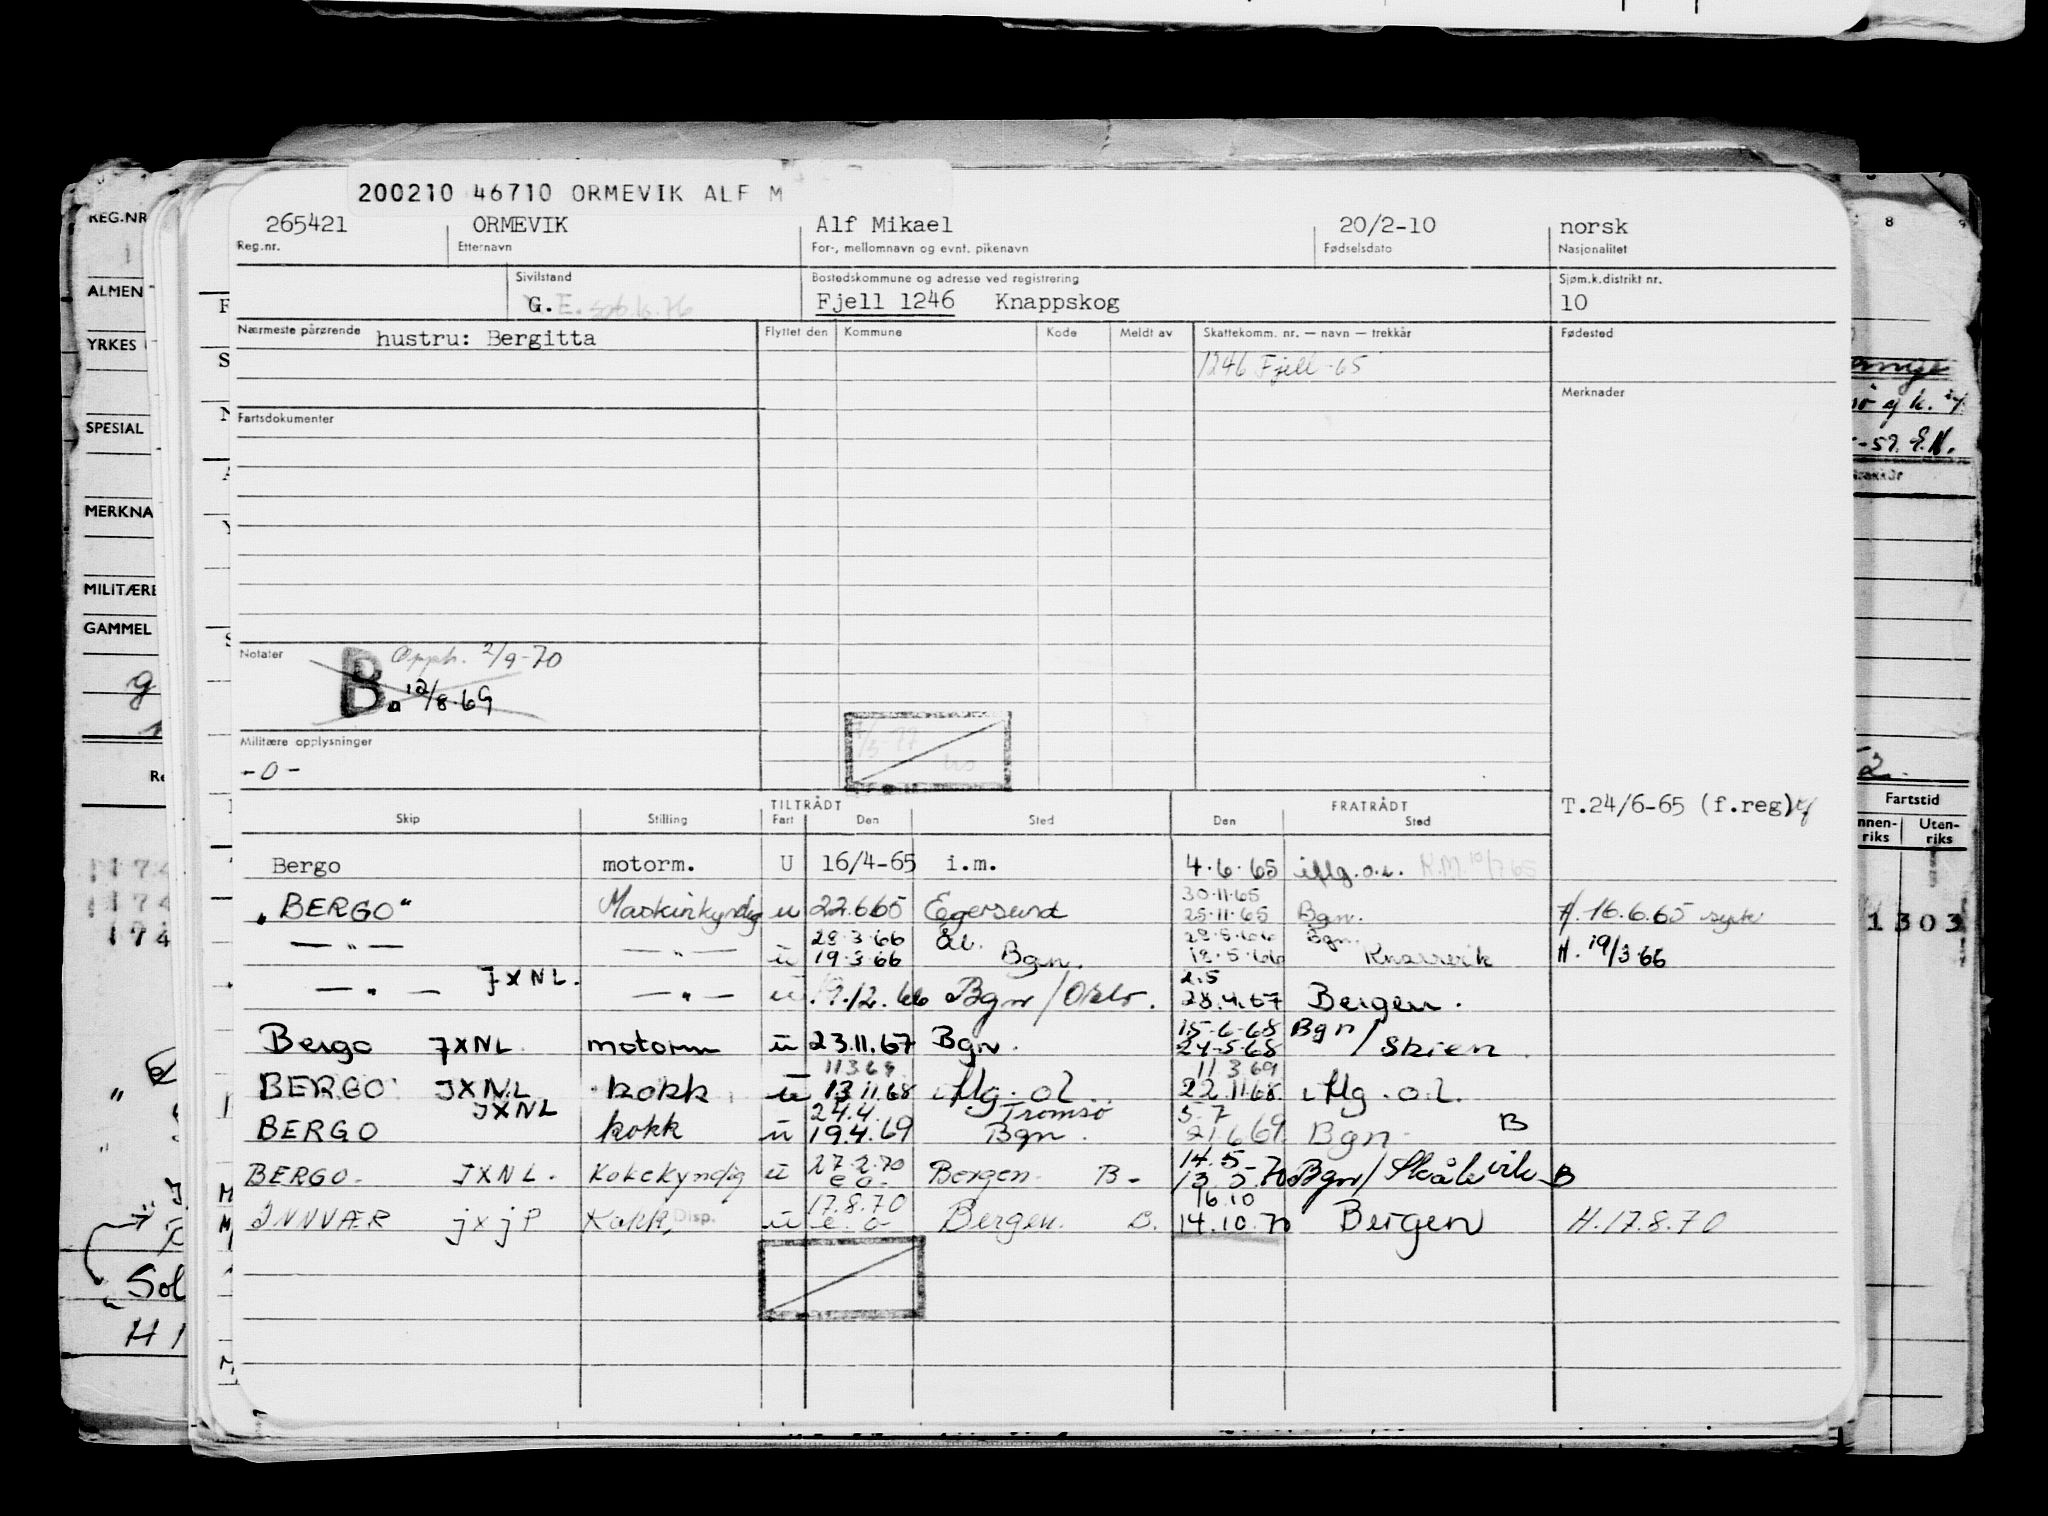 200210 46710 ORMEVIK ALF M
265421 ORMEVIK Alf Mikael 20/2-10 norsk
Reg.nr. Etternavn For-, mellomnavn og evnt. pikenavn Fødselsdato Nasjonalitet
Sivilstand Bostedskommune og adresse ved registrering Sjøm.k.distrikt nr.
G. E. Fjell 1246 Knappskog 10
Nærmeste pårørende hustru: Bergitta Flyttet den Kommune Kode Meldt av Skattekomm. nr. — navn — trekkår Fødested
1246 Fjell -65
Merknader
Fartsdokumenter
Notater
Opph. 2/9-70
B. 12/8.69
Militære opplysninger
-0-
TILTRÅDT FRATRÅDT T.24/6-65 (f.reg)
Skip Stilling Fart Den Sted Den Sted
Bergo motorm. U 16/4-65 i.m. 4.6.65 iflg.o.l.
30.11.65
"BERGO" Maskinkyndig u 22.6.65 Egersund 25.11.65 Bgn. H. 16.6.65
28.3.66 Ål. 28.5.66 Bgn.
— " — — " — u 19.3.66 Bgn. 18.5.66 Knarrevik H. 19/3.66
JXNL. 2.5
— " — — " — u 9.12.66 Bgn/Oslo. 28.4.67 Bergen.
15.6.68 Bgn
Bergo JXNL motorm u 23.11.67 Bgn. 24.5.68 / Skien.
11 3 69 11 3 69
BERGO JXNL kokk u 13.11.68 iflg. o.l. 22.11.68 iflg. o.l.
JXNL 24.4. Tromsø 5.7
BERGO kokk u 19.4.69 Bgn. 21.6.69 Bgn. B
27.2.70 14.5
BERGO. JXNL. Kokekyndig u e.o. Bergen. B. 13.5.70 Bgn/Skålevik B
17.8.70 16.10
INNVÆR jxjP Kokk, Disp. u e.o. Bergen. B. 14.10.70 Bergen H. 17.8.70
REG.NR
ALMEN
YRKES
SPESIAL
MERKNA
MILITÆRE
GAMMEL
Sol
H 1
8
-59. E.H.
Fartstid
nnen-
riks
Uten-
riks
1303